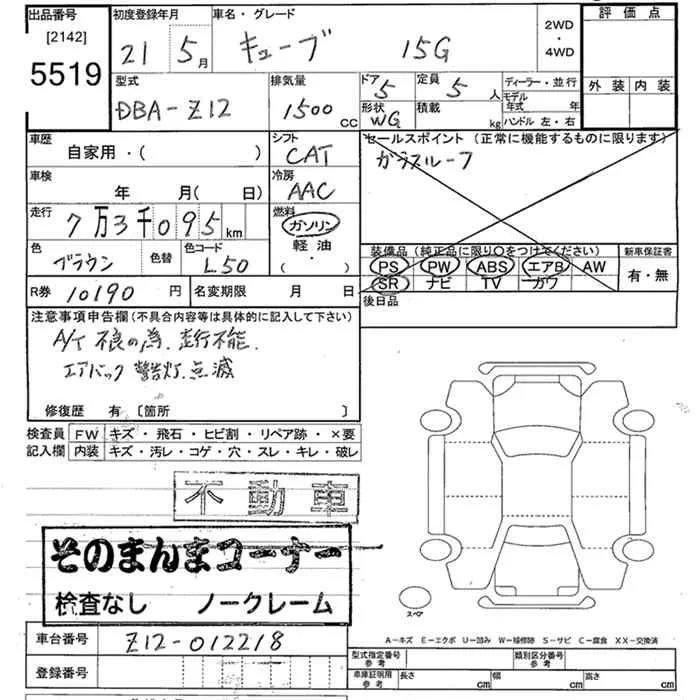 出品番号
[2142]
5519
初度登録年月
21 5月
車名・グレード
キューブ 15G
2WD
・
4WD
評価点
外装 内装
型式
DBA-Z12
排気量
1500 CC
ドア 5
形状 WG
定員 5 人
積載 kg
ディーラー・並行
モデル年式 年
ハンドル 左・右
車歴
自家用・( )
シフト
CAT
セールスポイント (正常に機能するものに限ります)
ガラスルーフ
車検
年 月(日)
冷房
AAC
走行
7万3千095 km
燃料
ガソリン
軽油
( ・ )
色
ブラウン
色替
色コード
L50
装備品 (純正品に限り○をつけてください)
PS PW ABS エアB AW
SR ナビ TV カワ
新車保証書
有・無
R券 10190 円
名変期限 月 日
後日品
注意事項申告欄 (不具合内容等は具体的に記入して下さい)
A/T 不良の為、走行不能.
エアバック 警告灯.点滅
修復歴 有 [箇所 ]
検査員 FW キズ・飛石・ヒビ割・リペア跡・×要
記入欄 内装 キズ・汚レ・コゲ・穴・スレ・キレ・破レ
不動車
そのまんまコーナー
検査なし ノークレーム
スペア
A-キズ E-エクボ U-凹み W-補修跡 S-サビ C-腐食 XX-交換済
車台番号 Z12-012218
登録番号
型式指定番号
参考
類別区分番号
参考
車庫証明用
参考
長さ cm 幅 cm 高さ cm